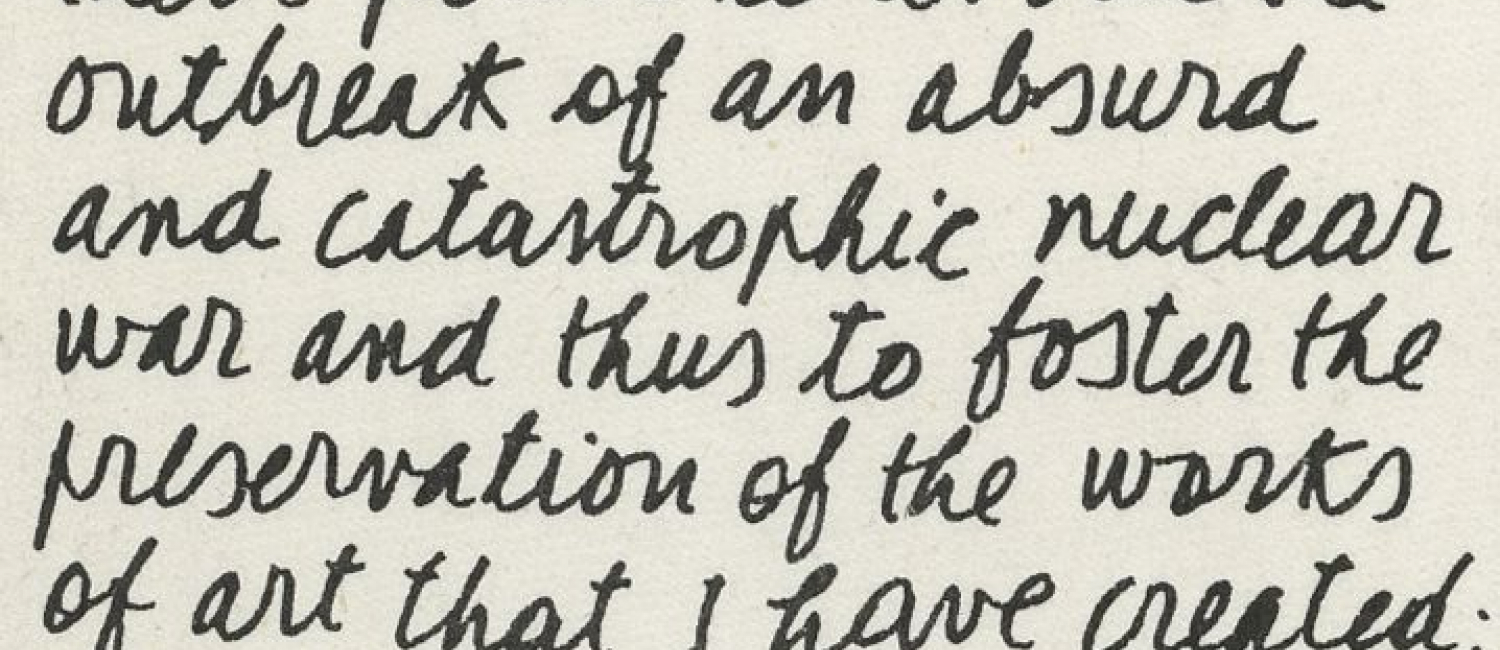 outbreak of an absurd
and catastrophic nuclear
war and thus to foster the
preservation of the works
of art that I have created: